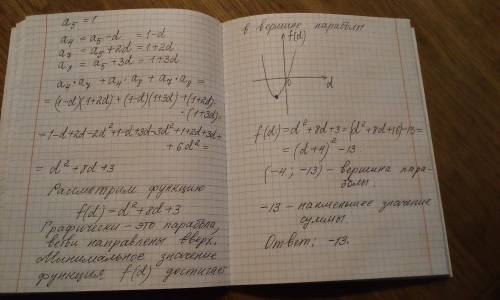 a₅ = 1
a₄ = a₅ - d = 1-d
a₇ = a₅ + 2d = 1+2d
a₈ = a₅ + 3d = 1+3d
a₄·a₇ + a₄·a₈ + a₇·a₈ =
= (1-d)(1+2d) + (1-d)(1+3d) + (1+2d)·
·(1+3d) =
= 1-d+2d-2d²+1-d+3d-3d²+1+2d+3d+
+6d² =
= d² + 8d + 3
Рассмотрим функцию
f(d) = d² + 8d + 3
Графически - это парабола,
ветви направлены вверх.
Минимальное значение
функция f(d) достигает
в вершине параболы
f(d)
0
d
f(d) = d² + 8d + 3 = (d² + 8d + 16) - 13 =
= (d+4)² - 13
(-4; -13) - вершина пара-
болы.
-13 - наименьшее значение
суммы.
Ответ: -13.